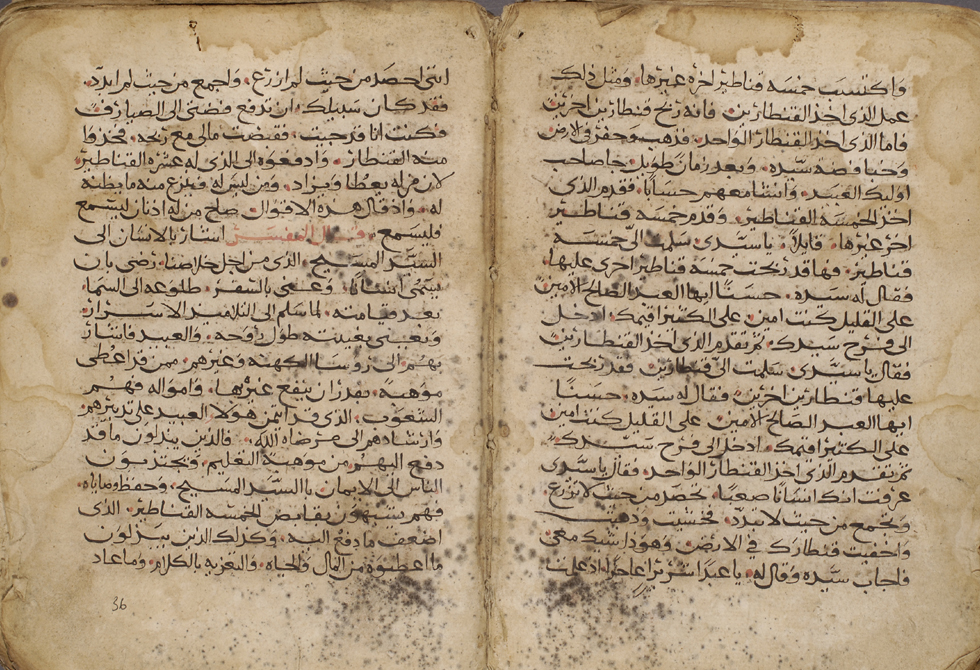 واكتسب خمسه قناطير اخره غيرها ومثل ذلك
عمل الذي اخذ القنطارين فانه ربح قنطارين اخرين
فاما الذي اخذ القنطار الواحد فذهب وحفر في الارض
وخبا فضة سيده وبعد زمان طويل جا صاحب
اوليك العبيد وانشا معهم حسابا فقدم الذي
اخذ الخمسه القناطير وقدم خمسه قناطير
اخر غيرها قايلا يا سيدي سلمت الي خمسه
قناطير فها قد ربحت خمسه قناطير اخرى عليها
فقال له سيده حسنا ايها العبد الصالح الامين
على القليل كنت امين على الكثير اقيمك ادخل
الى فرح سيدك ثم تقدم الذي اخذ القنطارين
فقال يا سيدي سلمت الي قنطارين فقد ربحت
عليها قنطارين اخرين فقال له سيده حسنا
ايها العبد الصالح الامين على القليل كنت امين
على الكثير اقيمك ادخل الى فرح سيدك
ثم تقدم الذي اخذ القنطار الواحد فقال يا سيدي
عرفت انك انسانا صعبا تحصد من حيث لا تزرع
وتجمع من حيث لا تبدد فخشيت وذهبت
واخفيت قنطارك في الارض وهوذا شيك معي
فاجاب سيده وقال له يا عبدا شريرا عاجزا اذ علمت
انني احصد من حيث لم ازرع واجمع من حيث لم ابدد
فقد كان سبيلك ان تدفع فضتي الى الصيارف
فكنت انا اذ جيت فقبضت مالي مع ربحه فخذوا
منه القنطار وادفعوه الى الذي له عشره القناطير
لان من له يعطا ويزاد ومن ليس له فينزع منه ما يظنه
له واذ قال هذه الاقوال صاح من له اذنان ليسمع
فليسمع قال المفسر اشار بالانسان الى
السيد المسيح الذي من اجل خلاصنا رضي بان
يسمى انسانا وعنى بالسفر طلوعه الى السما
بعد قيامته لما سلم الى التلاميذ الاسرار
ويعني بغيبته طول روحه والعبيد فاشار
بهم الى روسا الكهنه وغيرهم ممن قد اعطى
موهبة يقدر ان ينفع غيره بها وامواله فهم
الشعوب الذي قد ايتمن هولا العبيد على تدبيرهم
وارشادهم الى مرضاه الله فالذين يبدلون ما قد
دفع اليهم من موهبة التعليم ويجتذبون
الناس الى الايمان بالسيد المسيح وحفظ وصاياه
فهم يشبهون بقابض الخمسه القناطير الذي
اضعف ما دفع اليه وكذلك الذين يبذلون
ما اعطيوه من المال والحياه والتعزيه بالكلام وما عاد
36